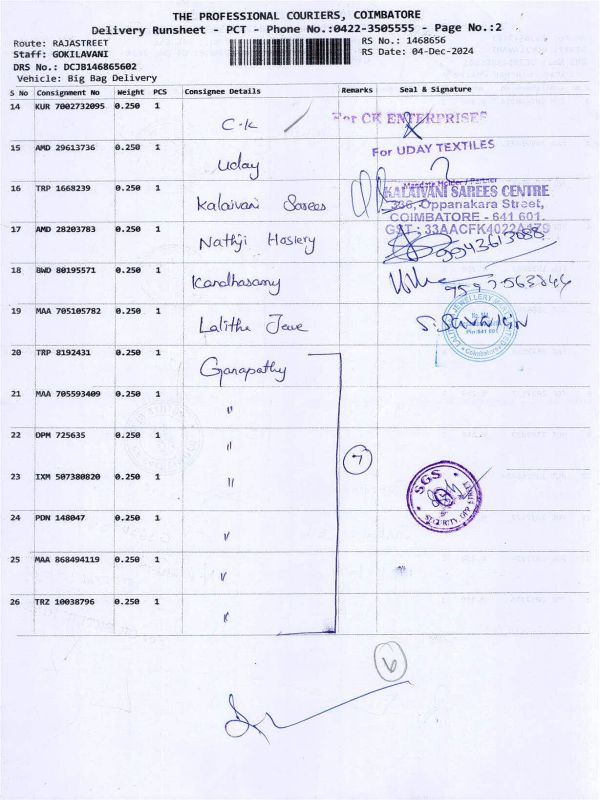 THE PROFESSIONAL COURIERS, COIMBATORE
Delivery Runsheet - PCT - Phone No.:0422-3505555 - Page No.:2
Route: RAJASTREET
RS No.: 1468656
Staff: GOKILAVANI
RS Date: 04-Dec-2024
DRS No.: DCJB146865602
Vehicle: Big Bag Delivery
S No Consignment No Weight PCS Consignee Details Remarks Seal & Signature
14 KUR 7002732095 0.250 1 C-K For CK ENTERPRISES
15 AMD 29613736 0.250 1 Uday For UDAY TEXTILES
16 TRP 1668239 0.250 1 Kalaivani Sarees
KALAIVANI SAREES CENTRE
366, Oppanakara Street,
COIMBATORE - 641 601.
17 AMD 28203783 0.250 1 Nathji Hosiery
18 BWD 80195571 0.250 1 Kandhasamy
19 MAA 705105782 0.250 1 Lalitha Jewe
20 TRP 8192431 0.250 1 Ganapathy
21 MAA 705593409 0.250 1 "
22 DPM 725635 0.250 1 "
23 IXM 507380820 0.250 1 "
7
SGS
SECURITY
24 PDN 148047 0.250 1 "
25 MAA 868494119 0.250 1 "
26 TRZ 10038796 0.250 1 "
6